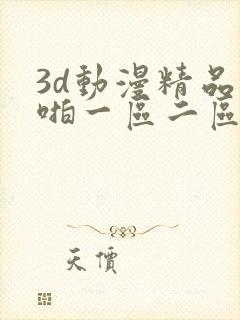 3d動漫精品
啪一區二區
天價